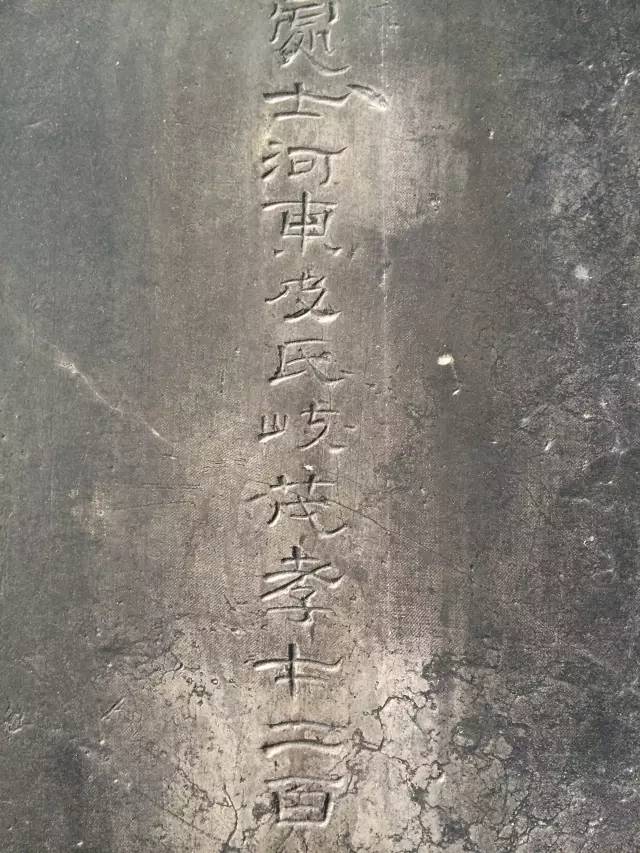 處士河東皮氏岐茂孝才二百